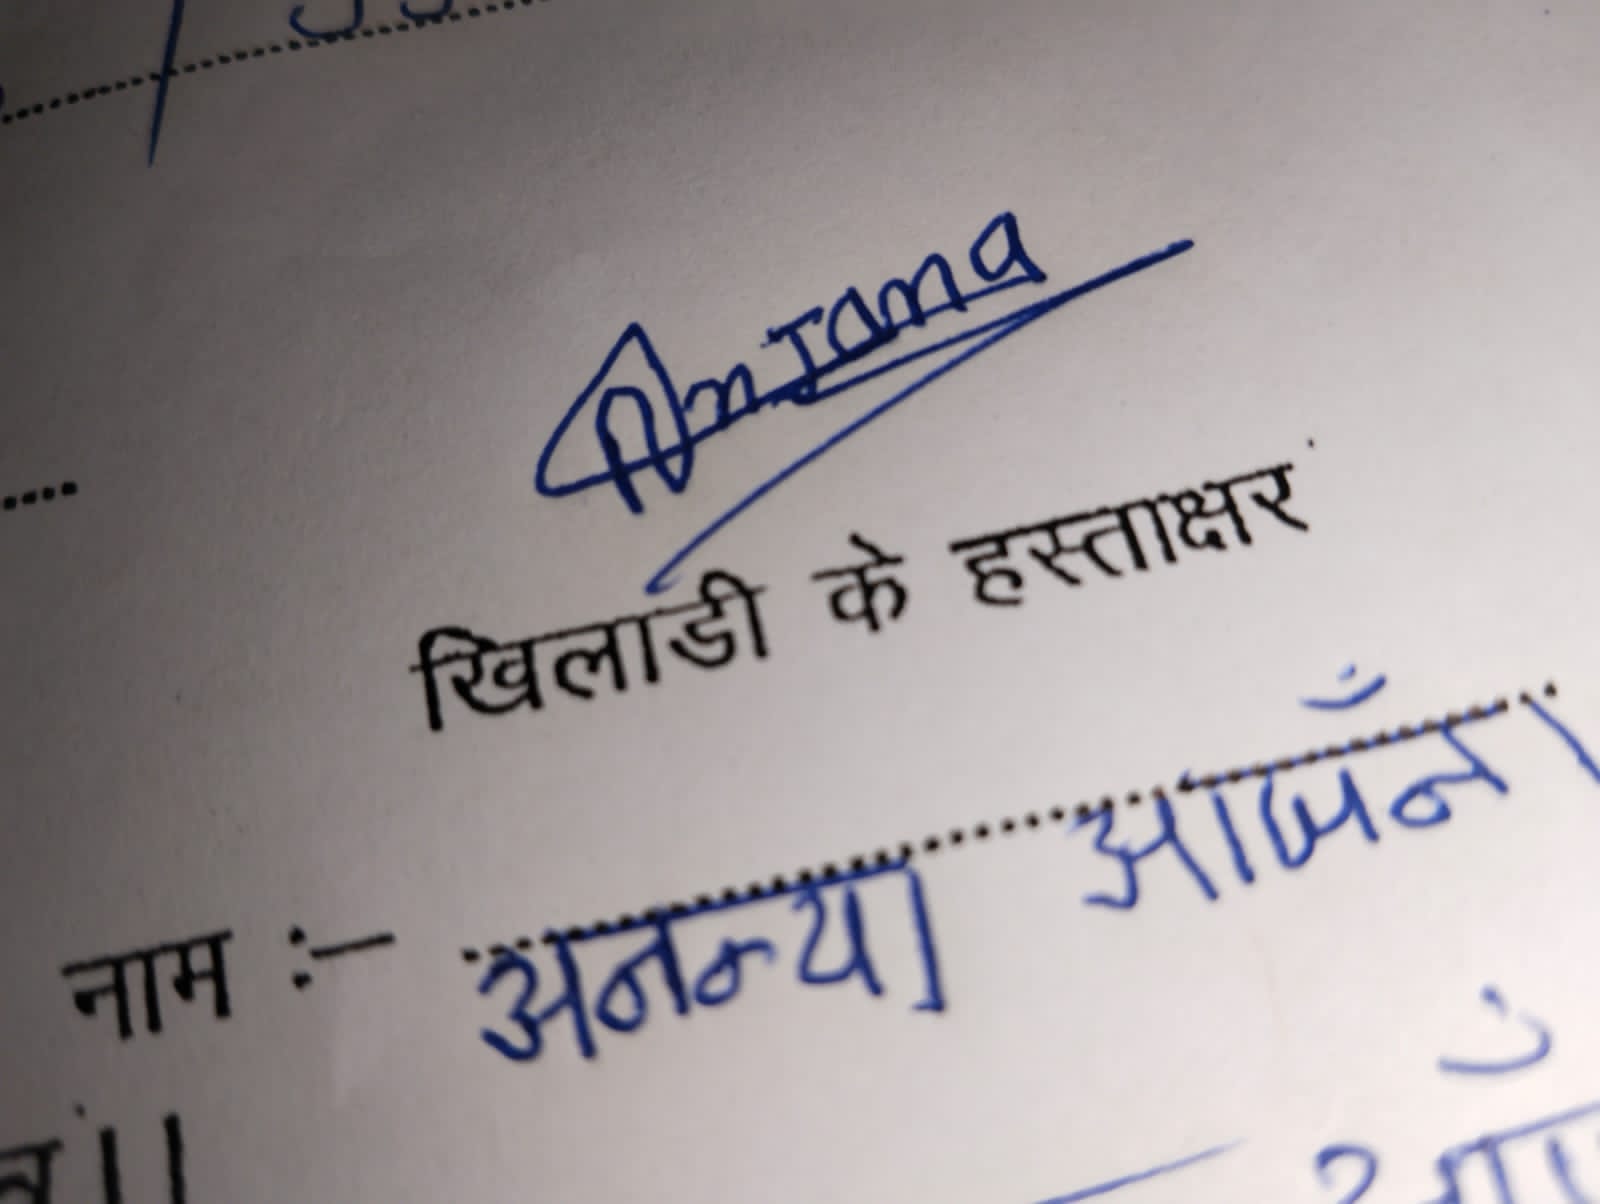 Anjana
खिलाडी के हस्ताक्षर
नाम :- अनन्या आजँना